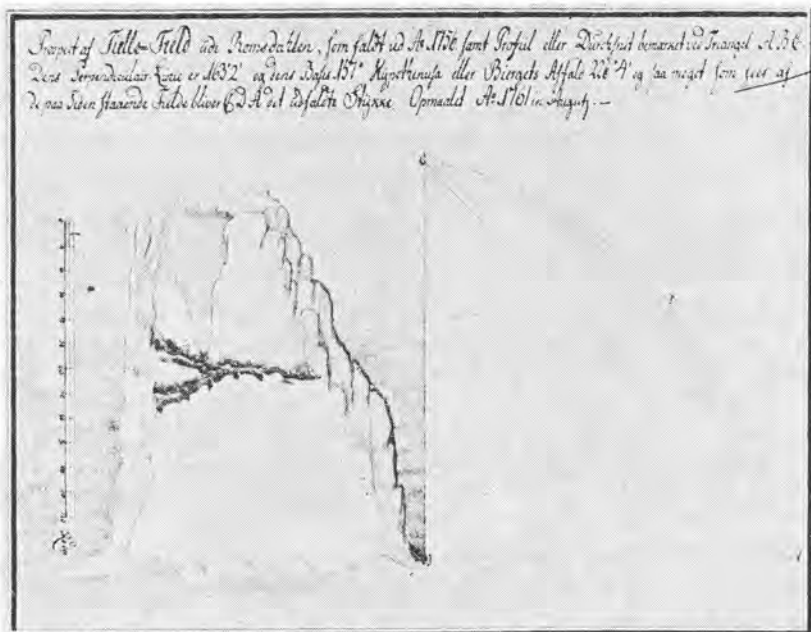 Prospect af Tielle-Field udi Romsdahlen, som faldt ud Aº 1756 samt Profil eller Durchsnit bemærket ved Triangel A B C
Dens Perpendiculair Linie er 1632' og dens Basis 157º Hypothenusa eller Biergets Affald og saa meget som sees af
de paa Siden staaende Fielde bliver C D A det udfaldte Stykke Opmaalet Aº 1761 in Augusti. —
C